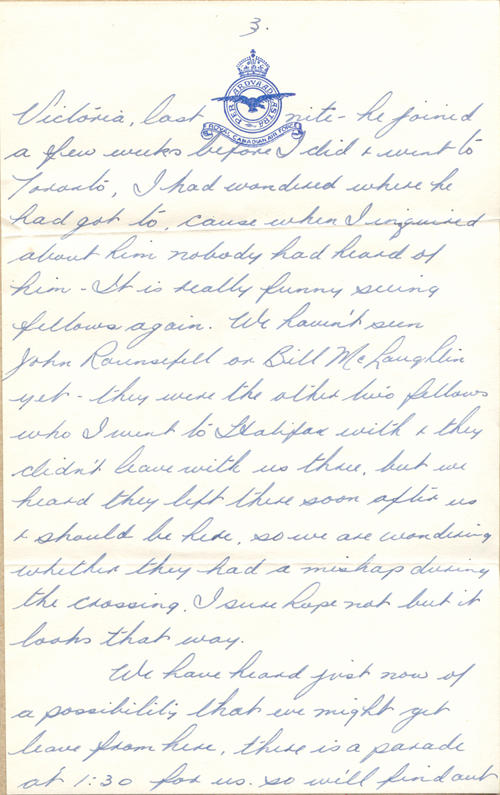 3.
PER ARDUA AD ASTRA
ROYAL CANADIAN AIR FORCE
Victoria, last nite - he joined
a few weeks before I did & went to
Toronto, I had wondered where he
had got to, cause when I inquired
about him nobody had heard of
him - It is really funny seeing
fellows again. We haven't seen
John Rounsefell or Bill McLaughlin
yet - they were the other two fellows
who I went to Halifax with & they
didn't leave with us three, but we
heard they left there soon after us
& should be here, so we are wondering
whether they had a mishap during
the crossing. I sure hope not but it
looks that way.
We have heard just now of
a possibility that we might get
leave from here, there is a parade
at 1:30 for us. so we'll find out